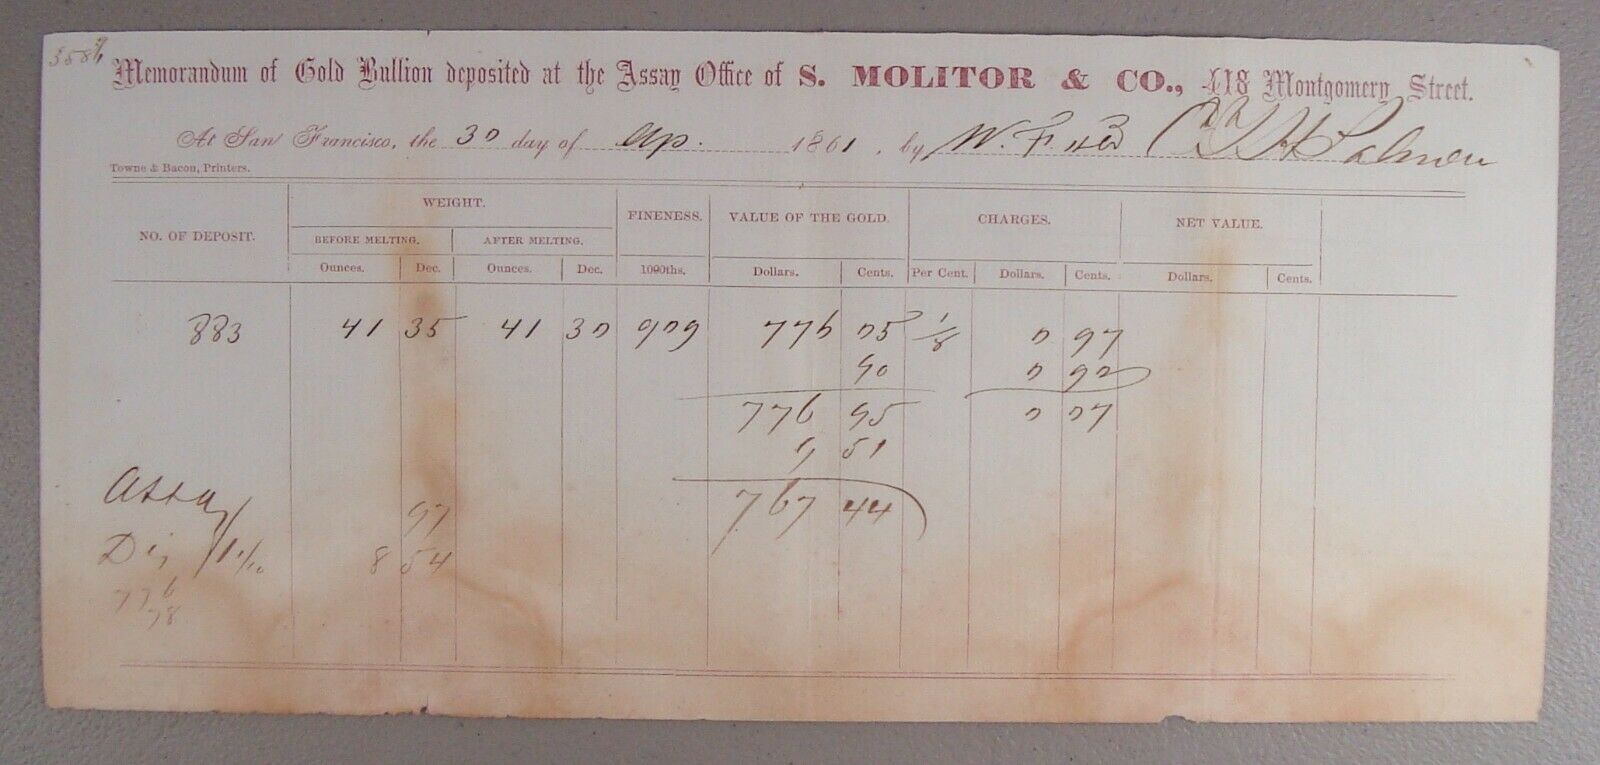 Memorandum of Gold Bullion deposited at the Assay Office of S. MOLITOR & CO., 418 Montgomery Street.
At San Francisco, the 30 day of Ap. 1861, by W. F. & Co
Towne & Bacon, Printers.
NO. OF DEPOSIT. WEIGHT. FINENESS. VALUE OF THE GOLD. CHARGES. NET VALUE.
BEFORE MELTING. AFTER MELTING.
Ounces. Dec. Ounces. Dec. 1000ths. Dollars. Cents. Per Cent. Dollars. Cents. Dollars. Cents.
883 41 35 41 30 909 776 05 1/8 0 97
90 0 90
776 95 0 07
9 51
767 44
Assay 97
Dis 1 1/10 8 54
776
78